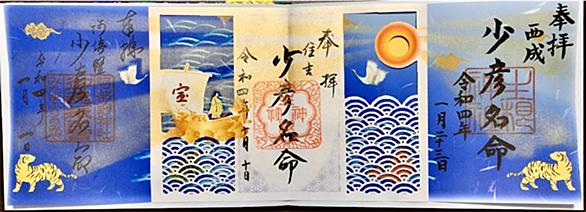 奉拝
西成
少彦名命
令和四年
一月二十三日
奉拝
住吉
少彦名命
令和四年一月十日
宝
奉拝
少彦名命
令和四年
一月